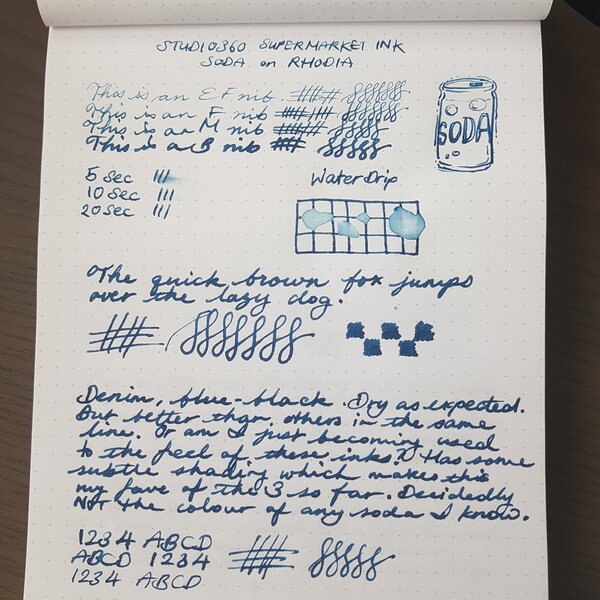 STUDIO360 SUPERMARKET INK
SODA on RHODIA
This is an EF nib
This is an F nib
This is an M nib
This is a B nib
SODA
5 Sec
10 Sec
20 Sec
Water Drip
The quick brown fox jumps
over the lazy dog.
Denim, blue-black. Dry as expected.
But better than others in the same
line. Or am I just becoming used
to the feel of these inks? Has some
subtle shading which makes this
my fave of the 3 so far. Decidedly
NOT the colour of any soda I know.
1234 ABCD
ABCD 1234
1234 ABCD